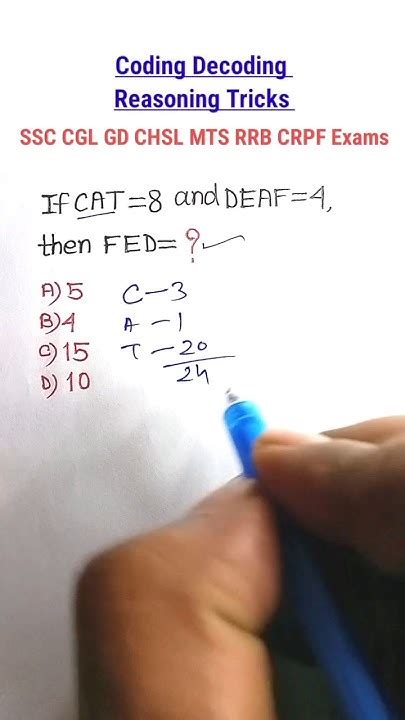 Coding Decoding
Reasoning Tricks
SSC CGL GD CHSL MTS RRB CRPF Exams
If CAT=8 and DEAF=4,
then FED= ?
A) 5 C-3
B) 4 A-1
C) 15 T-20
D) 10 24